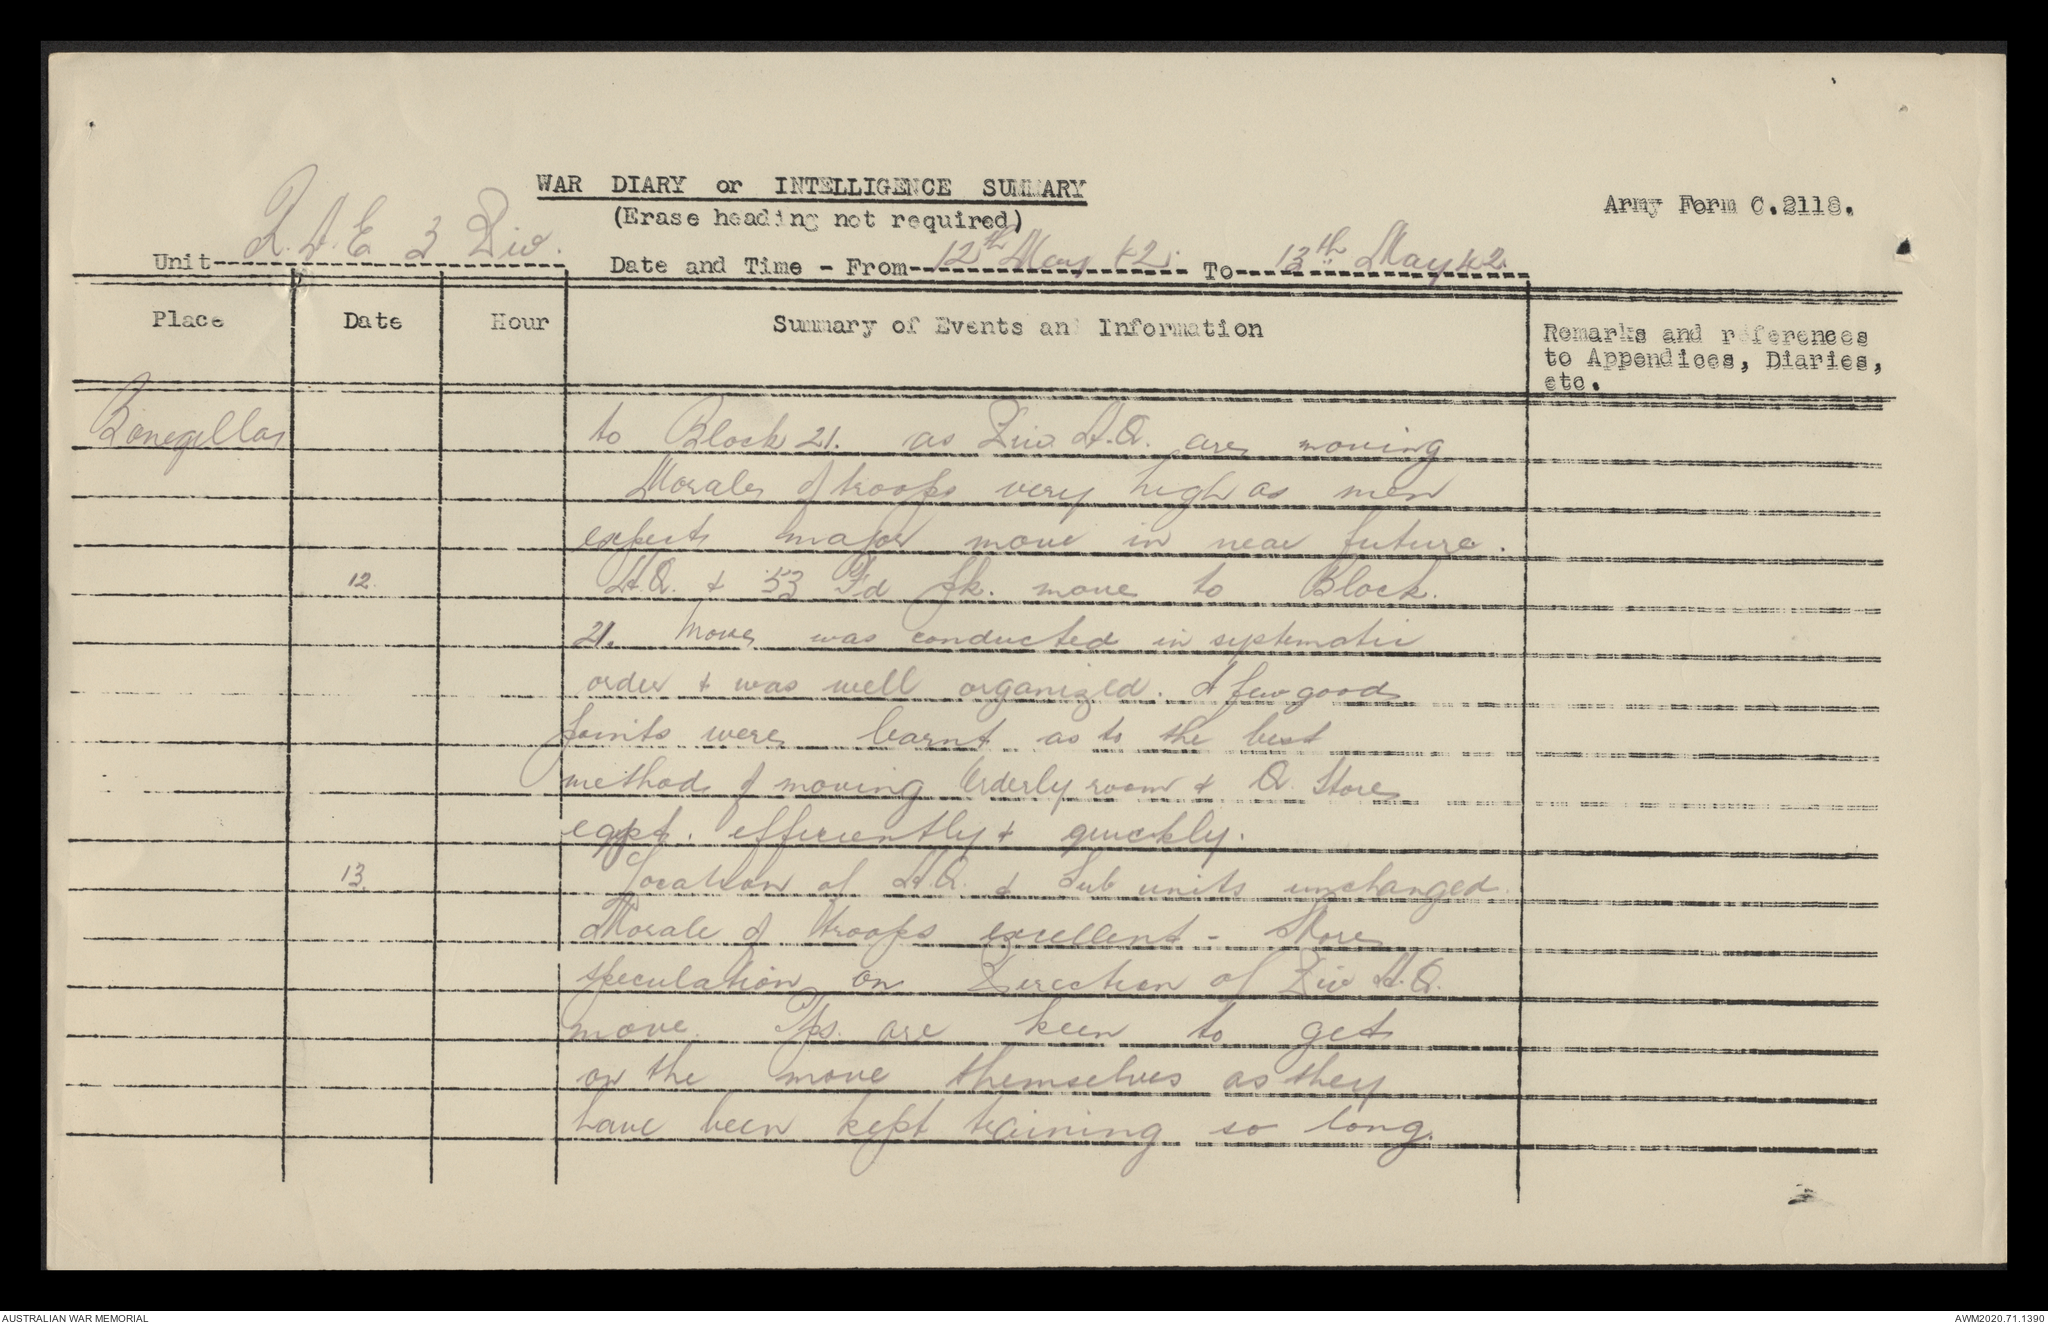 WAR DIARY or INTELLIGENCE SUMMARY
(Erase heading not required)
Army Form C.2118.
Unit R.A.E 3 Div.
Date and Time - From 12th May 42. To 13th May 42.
Place Date Hour Summary of Events and Information Remarks and references
to Appendices, Diaries,
etc.
Bonegilla to Block 21. as Div H.Q. are moving
Morale of troops very high as men
expect major move in near future.
12. H.Q. & 53 Fd Pk. move to Block.
21. Move was conducted in systematic
order & was well organized. A few good
points were learnt as to the best
method of moving Orderly room & Q. Store
eqpt. efficiently & quickly.
13. Location of H.Q. & Sub units unchanged.
Morale of troops excellent - More
speculation on Direction of Div H.Q.
move. Tps. are keen to get
on the move themselves as they
have been kept training so long.
AUSTRALIAN WAR MEMORIAL
AWM2020.71.1390